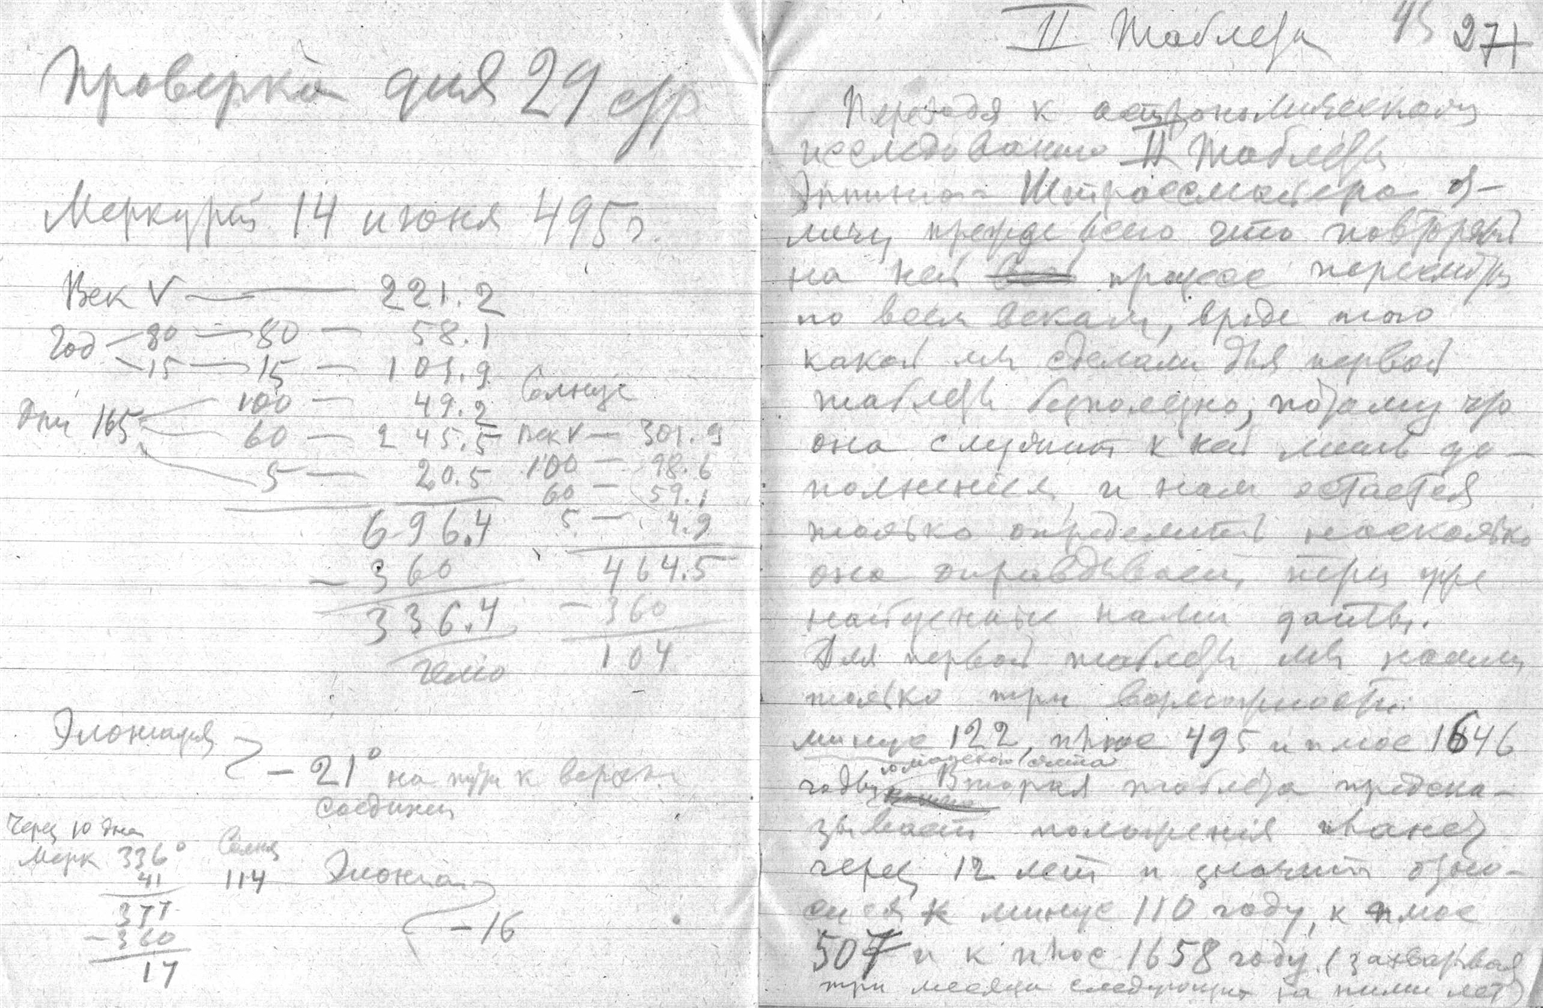 Проверка для 29 стр
Меркурий 14 июня 495 г.
Век V — 221.2
Год 80 — 80 — 58.1
15 — 15 — 101.9
Дни 165 100 — 49.2
60 — 245.5
5 — 20.5
696.4
— 360
336.4
гелио
Солнце
Век V — 301.9
100 — 98.6
60 — 59.1
5 — 4.9
464.5
— 360
104
Элонгация
— 21° на пути к верхн
соединен
Через 10 дней
Мерк 336° Солнц
41 114 Элонга
377
— 360 — 16
17
II Таблеты 271
Переходя к астрономическому
исследованию II таблеты
Штроссмайера я
прежде всего что повторять
на ней процесс
по всем векам, вроде того
какой мы сделали для первой
таблеты бесполезно, потому что
она служит к ней лишь до-
полнением и нам остается
только определить насколько
она оправдывает три уже
найденные нами даты.
Для первой таблеты мы нашли
только три возможности:
минус 122, плюс 495 и плюс 1646
годы юлианского счета Вторая таблета предска-
зывает положения планет
через 12 лет и значит отно-
сится к минус 110 году, к плюс
507 и к плюс 1658 году (захватывая
три месяца следующих за ними лет)